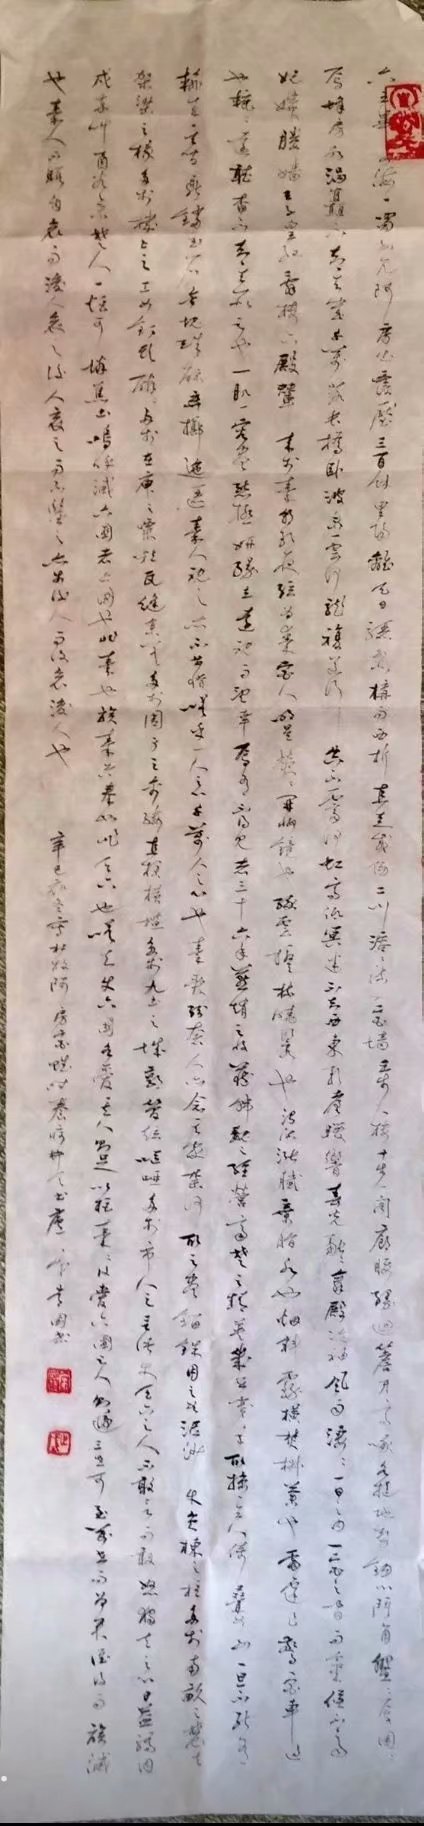 六王畢四海一蜀山兀阿房出覆壓三百餘里隔離天日驪山北構而西折直走咸陽二川溶溶流入宮墻五步一樓十步一閣廊腰縵迴簷牙高啄各抱地勢鉤心鬥角盤盤焉囷囷
焉蜂房水渦矗不知其幾千萬落長橋臥波未雲何龍複道行空不霽何虹高低冥迷不知西東歌臺暖響春光融融舞殿冷袖風雨淒淒一日之內一宮之間而氣候不齊
妃嬪媵嬙王子皇孫辭樓下殿輦來於秦朝歌夜弦為秦宮人明星熒熒開妝鏡也綠雲擾擾梳曉鬟也渭流漲膩棄脂水也煙斜霧橫焚椒蘭也雷霆乍驚宮車過
也轆轆遠聽杳不知其所之也一肌一容盡態極妍縵立遠視而望幸焉有不見者三十六年燕趙之收藏韓魏之經營齊楚之精英幾世幾年取掠其人倚疊如山一旦不能有
輸來其間鼎鐺玉石金塊珠礫棄擲邐迤秦人視之亦不甚惜嗟乎一人之心千萬人之心也秦愛紛奢人亦念其家奈何取之盡錙銖用之如泥沙使負棟之柱多於南畝之農夫
架梁之椽多於機上之工女釘頭磷磷多於在庾之粟粒瓦縫參差多於周身之帛縷直欄橫檻多於九土之城郭管弦嘔啞多於市人之言語使天下之人不敢言而敢怒獨夫之心日益驕固
戍卒叫函谷舉楚人一炬可憐焦土嗚呼滅六國者六國也非秦也族秦者秦也非天下也嗟夫使六國各愛其人則足以拒秦秦復愛六國之人則遞三世可至萬世而為君誰得而族滅
也秦人不暇自哀而後人哀之後人哀之而不鑒之亦使後人而復哀後人也 辛巳 書杜牧阿房宮賦